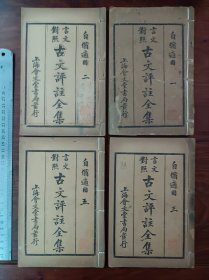 自脩適用 二
言文對照 古文評註全集
上海會文堂書局發行
自脩適用 一
言文對照 古文評註全集
上海會文堂書局發行
自脩適用 五
言文對照 古文評註全集
上海會文堂書局發行
自脩適用 三
言文對照 古文評註全集
上海會文堂書局發行